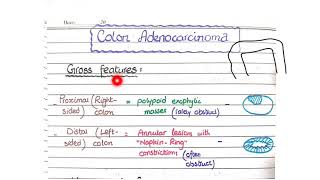 Date: 20
Colon Adenocarcinoma
Gross features:
Proximal (Right- = polypoid exophytic
sided) colon masses (rarely obstruct)
Distal (Left- = Annular lesion with
sided) colon "Napkin-Ring"
constriction (often
obstruct)